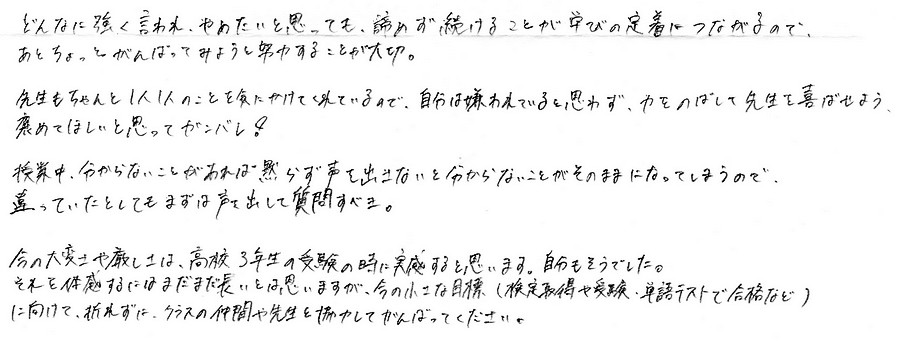 どんなに強く言われ、やめたいと思っても、諦めず続けることが学びの定着につながるので、
あとちょっとがんばってみようと努力することが大切。
先生もちゃんと1人1人のことを気にかけてくれているので、自分は嫌われていると思わず、力をのばして先生を喜ばせよう、
褒めてほしいと思ってガンバレ!
授業中、分からないことがあれば黙らず声を出さないと分からないことがそのままになってしまうので、
違っていたとしてもまずは声を出して質問すべき。
今の大変さや厳しさは、高校3年生の受験の時に実感すると思います。自分もそうでした。
それを体感するにはまだまだ長いとは思いますが、今の小さな目標(検定取得や受験、単語テストで合格など)
に向けて、折れずに、クラスの仲間や先生と協力してがんばってください。